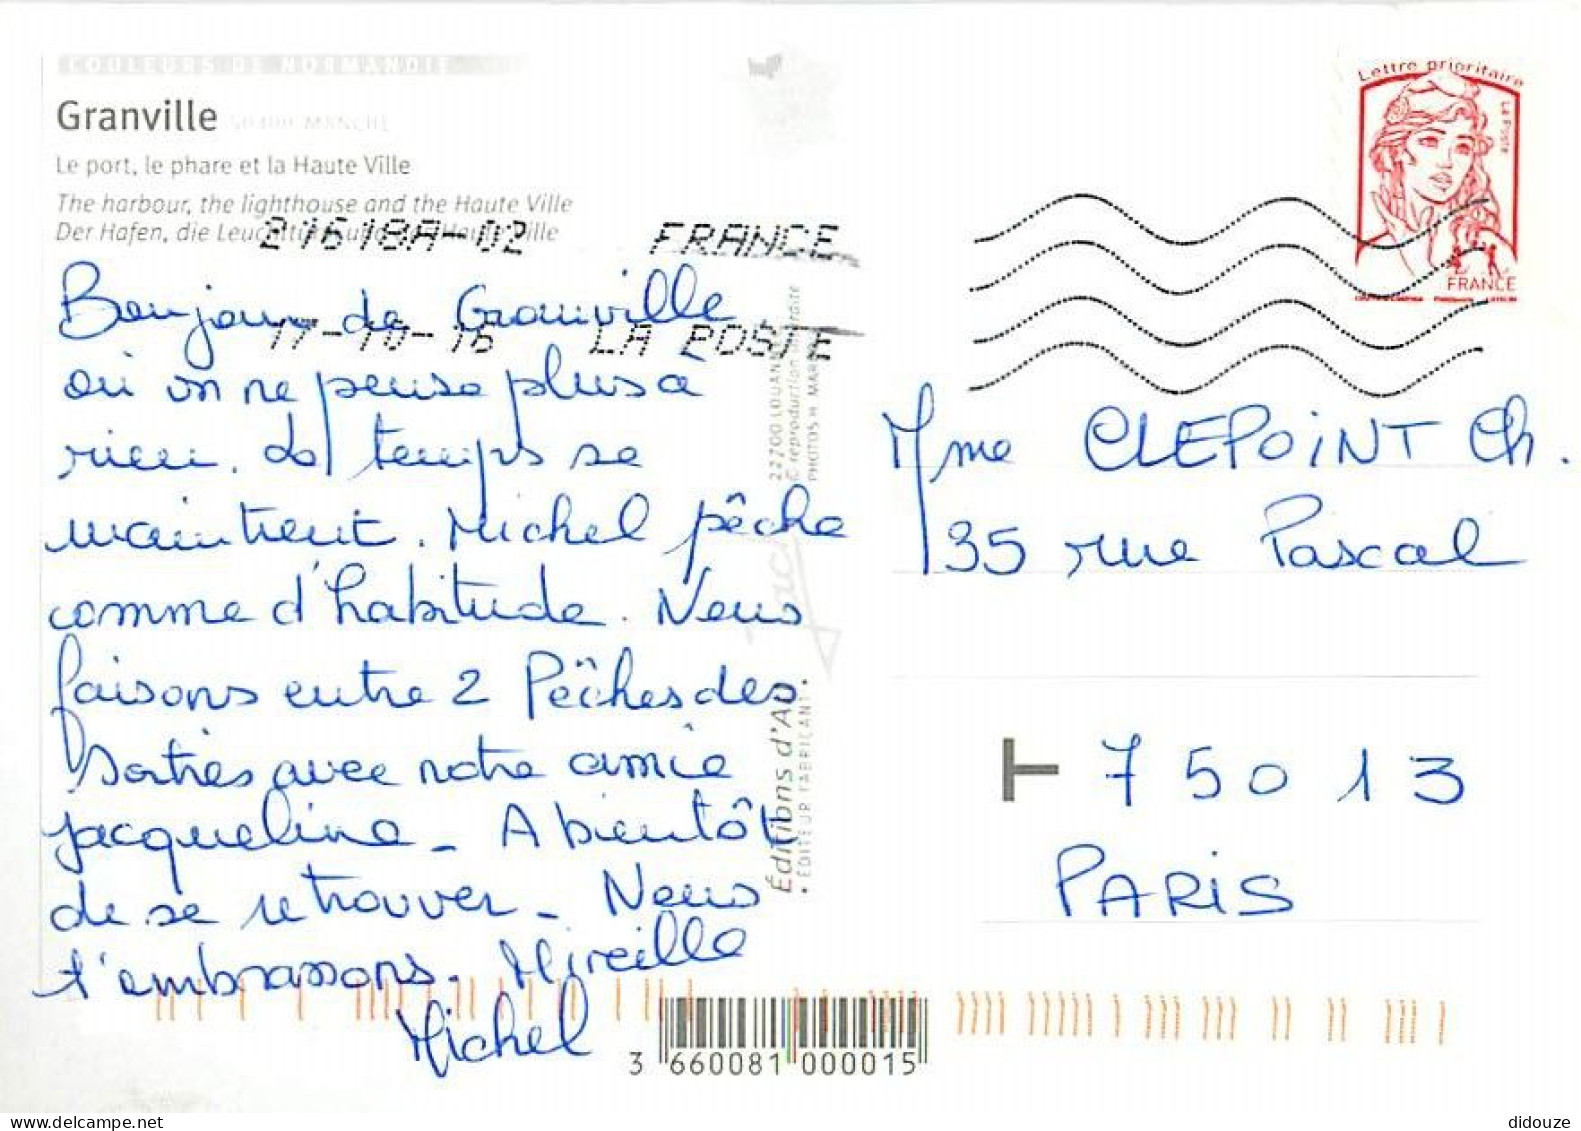 COULEURS DE NORMANDIE
Granville 50400 MANCHE
Le port, le phare et la Haute Ville
The harbour, the lighthouse and the Haute Ville
Der Hafen, die Leuchtturm und der Haute Ville
21618A-02 FRANCE
17-10-16 LA POSTE
Lettre prioritaire
La Poste
FRANCE
Bonjour de Granville
où on ne pense plus à
rien. Le temps se
maintient. Michel pêche
comme d'habitude. Nous
faisons entre 2 Pêches des
sorties avec notre amie
Jacqueline - A bientôt
de se retrouver - Nous
t'embrassons. Mireille
Michel
Mme CLEPOINT Ch.
135 rue Pascal
75013
PARIS
22700 LOUAN
© reproduction interdite
PHOTOS H. MAR
Jack
Éditions d'Art
• ÉDITEUR FABRICANT •
3 660081 000015
didouze